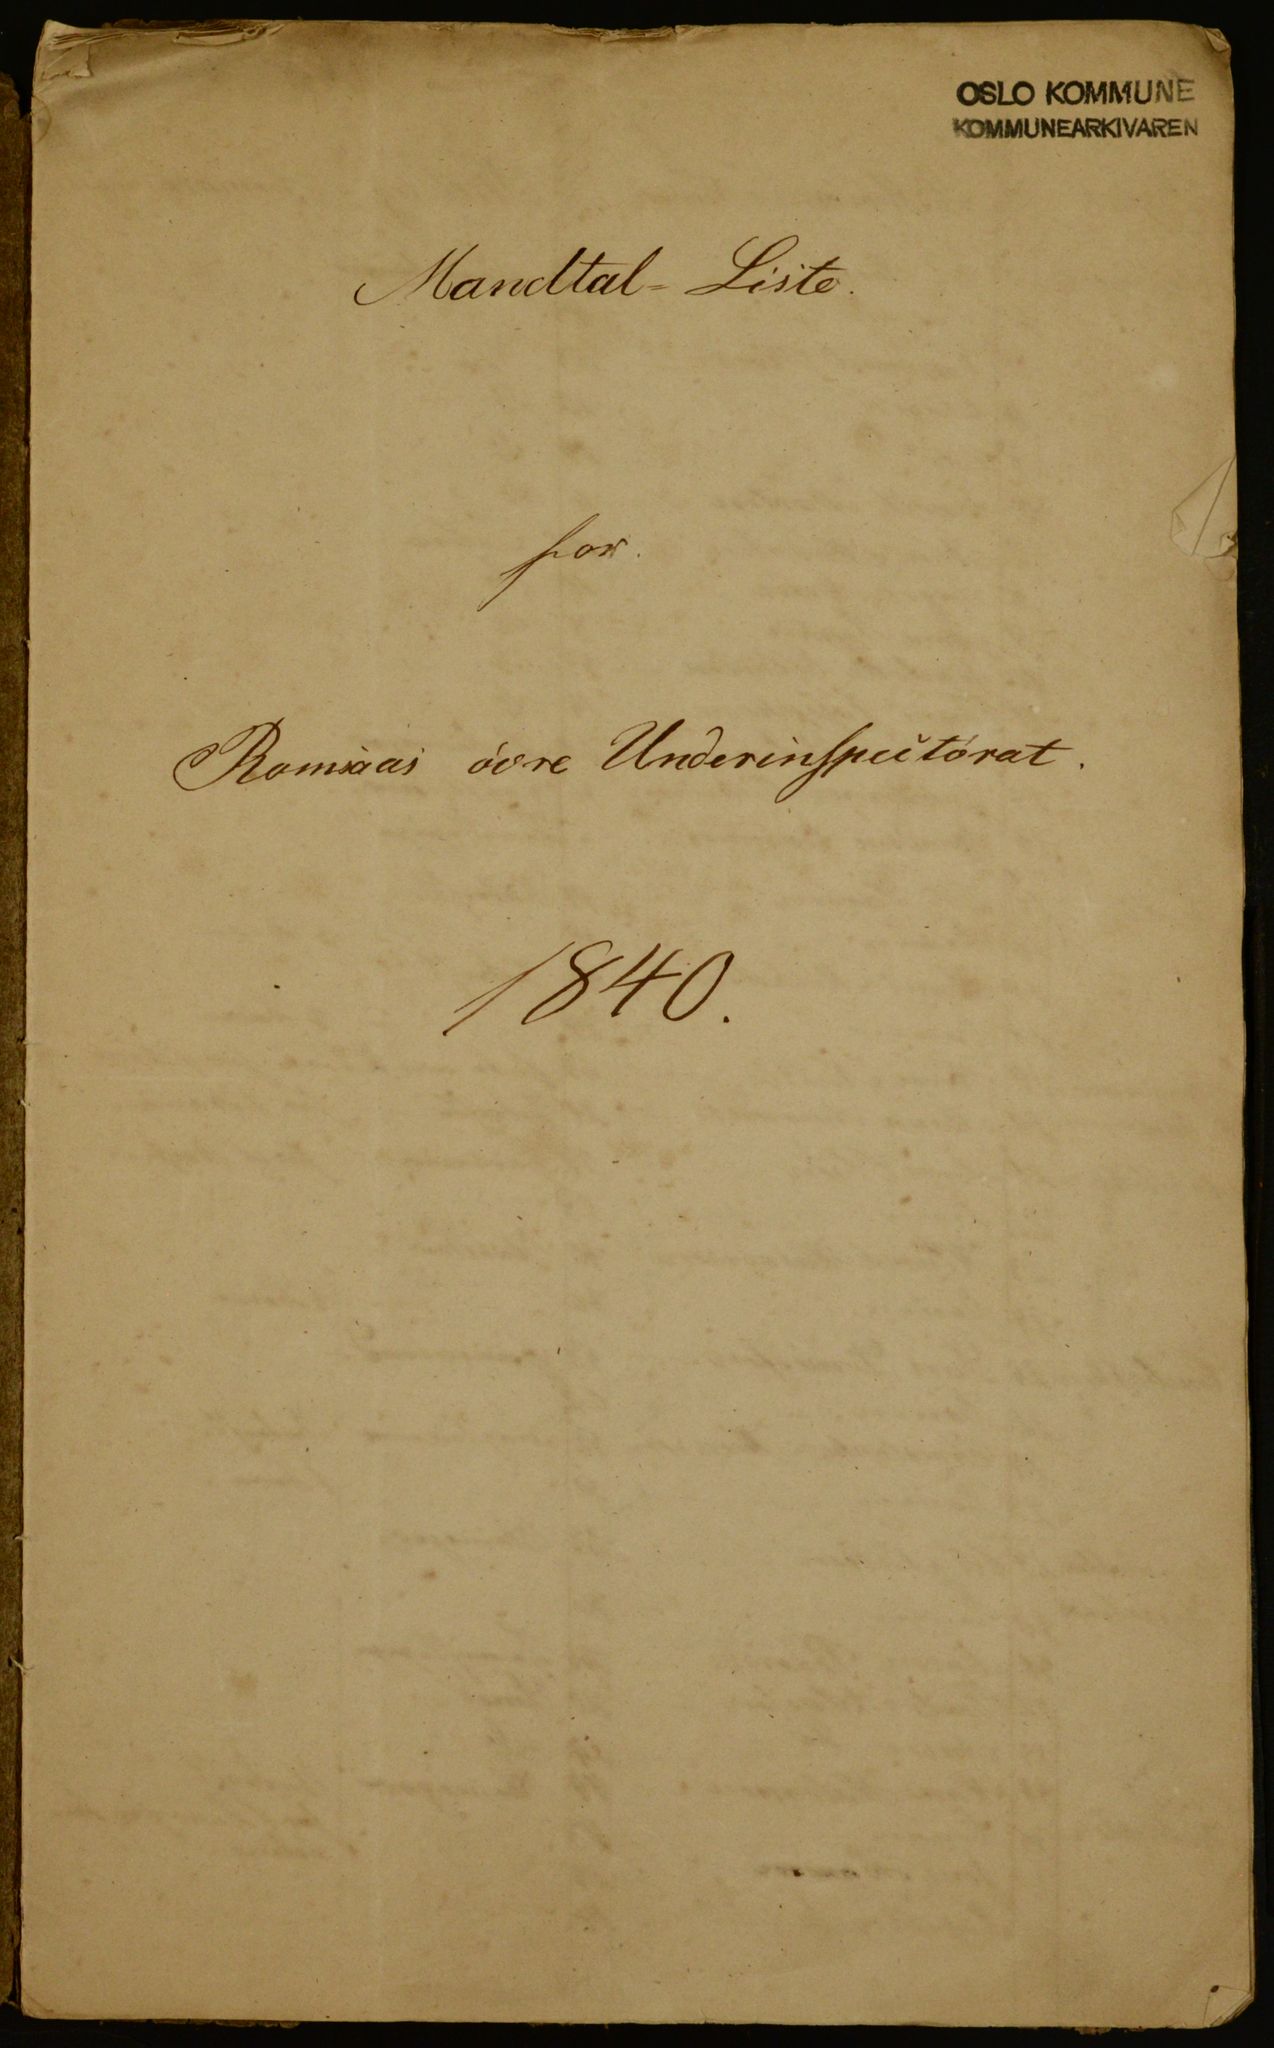 OSLO KOMMUNE
KOMMUNEARKIVAREN
Mandtal-Liste.
for.
Romsaas övre Underinspectorat.
1840.